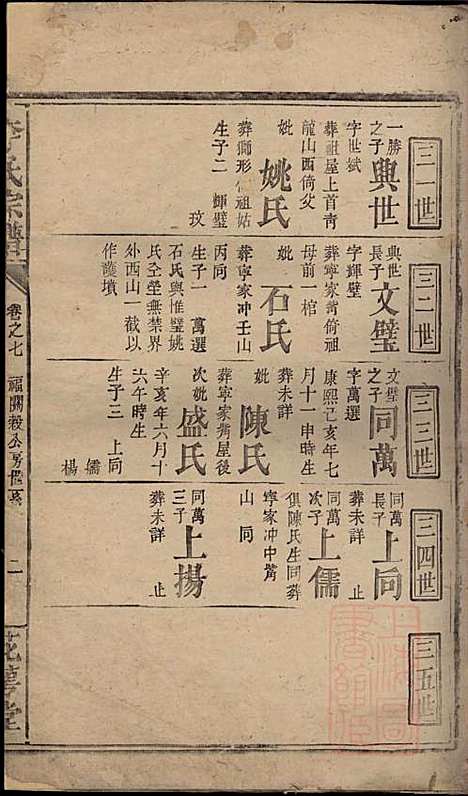 三一世
一勝之子
興世
字世斌
葬祖屋上首靑
龍山西倚父
妣
姚氏
葬獅形 祖姑
生子二 輝璧
玟
三二世
興世長子
文璧
字輝璧
葬寧家灣倚祖
母前一棺
妣
石氏
葬寧家冲壬山
丙同
生子一 萬選
石氏與惟璧姚
氏仝塋無禁界
外西山一截以
作護墳
三三世
文璧之子
同萬
字萬選
康熙己亥年七
月十一申時生
葬未詳
妣
陳氏
葬寧家灣屋後
次妣
盛氏
辛亥年六月十
六午時生
生子三 上同
儒
楊
三四世
同萬長子
上同
葬未詳 止
同萬次子
上儒
俱陳氏生同葬
寧家冲中嘴
山同
同萬三子
上揚
葬未詳 止
三五世
李氏宗譜
卷之七
福開毅公房世系
二